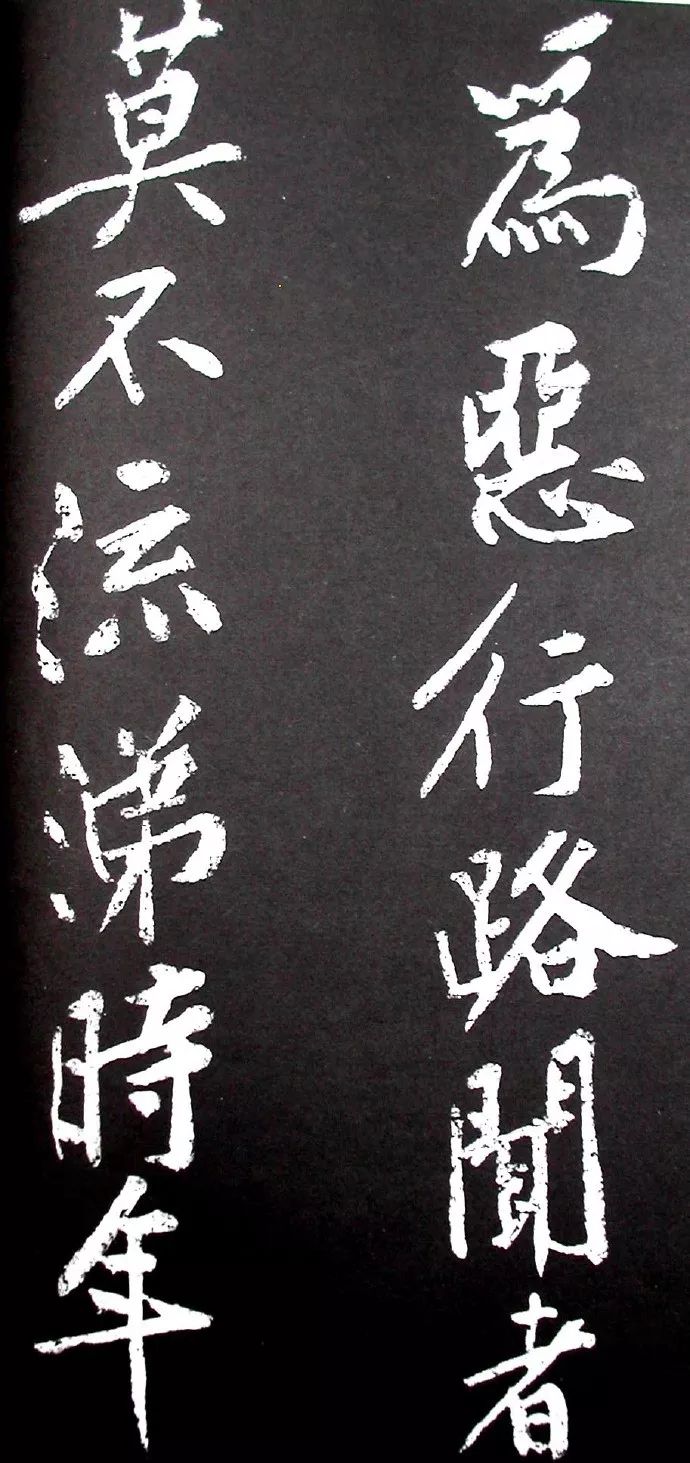 爲惡行路聞者
莫不流涕時年